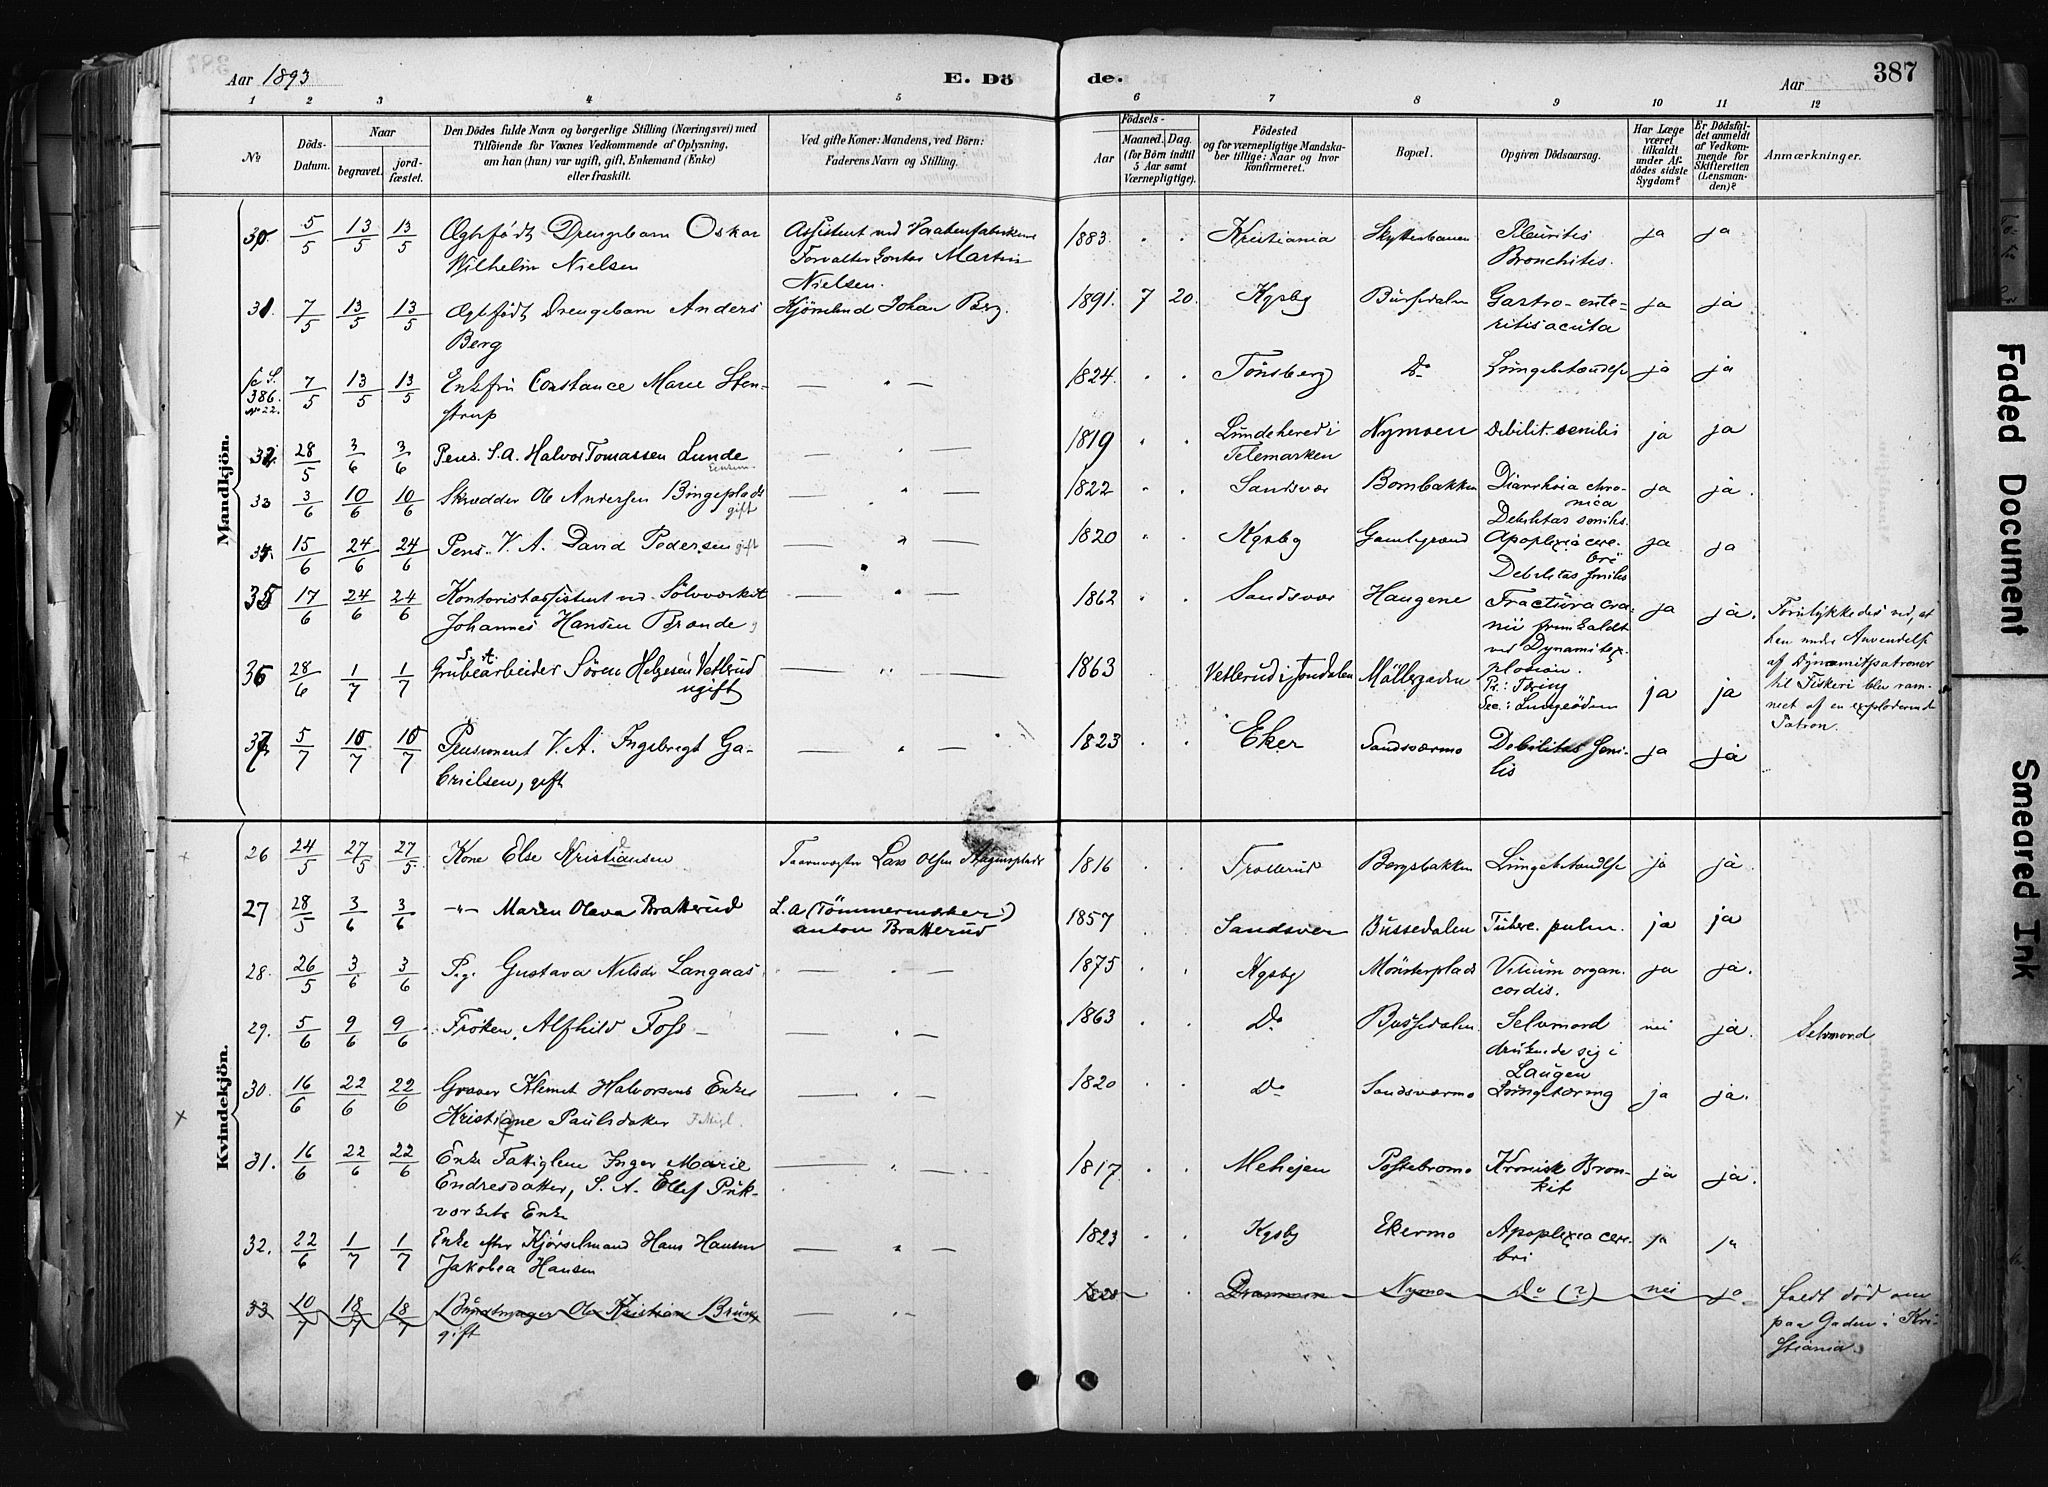 Aar 1893
E. Dö
de.
Aar
387
1 2 3 4 5 6 7 8 9 10 11 12
No
Döds-
Datum.
Naar
begravet.
jord-
fæstet.
Den Dödes fulde Navn og borgerlige Stilling (Næringsvei) med
Tilföiende for Voxnes Vedkommende af Oplysning,
om han (hun) var ugift, gift, Enkemand (Enke)
eller fraskilt.
Ved gifte Koner: Mandens, ved Börn:
Faderens Navn og Stilling.
Födsels-
Aar
Maaned.
Dag.
(for Börn indtil
5 Aar samt
Værnepligtige).
Födested
og for værnepligtige Mandska-
ber tillige: Naar og hvor
konfirmeret.
Bopæl.
Opgiven Dödsaarsag.
Har Læge
været
tilkaldt
under Af-
dödes sidste
Sygdom?
Er Dödsfal-
det anmeldt
af Vedkom-
mende for
Skifteretten
(Lensman-
den)?
Anmærkninger.
Mandkjön.
30. 5/5 13/5 13/5 Ægtefödt Drengebarn Oskar Assistent ved Vaabenfabrikens 1883. " " Kristiania Skytterbanen Pleuritis ja ja
Wilhelm Nielsen Forvalter Martin Bronchitis.
Nielsen.
31 7/5 13/5 13/5 Ægtefödt Drengebarn Anders Johan Berg. 1891. 7 20. Kgsbg Gastro-ente- ja ja
Berg ritis acuta
se S. 7/5 13/5 13/5 Enkefru Constance Marie Sten- — " — 1824. " " Tönsberg Do Lungebetændelse ja ja
386 strup
No 22.
32 28/5 3/6 3/6 Pens. S.A. Halvor Tomassen Lunde — " — 1819 " " Lundehered i Nymoen Debilit. senilis ja ja
Telemarken
33 3/6 10/6 10/6 Skrædder Ole Andersen Bingeplads — " — 1822 " " Sandsvær Bombakken Diarrhoia chro- ja ja.
gift nica
Debilitas senilis.
34. 15/6 24/6 24/6 Pens. V. A. David Pedersen gift — " — 1820 " " Kgsbg Apoplexia cere- ja ja
bri
Debilitas senilis
35 17/6 24/6 24/6 Kontoristassistent ved Sölvværket — " — 1862 " " Sandsvær Haugene Fractura cra- ja ja. Forulykkedes ved, at
Johannes Hansen Brande g nii fremkaldt han under Anvendelse
ved Dynamitex- af Dynamitpatroner
plosion. til Fiskeri blev ram-
met af en exploderende
Patron.
36 28/6 1/7 1/7 S. A.
Grubearbeider Sören Helgesen Vetlerud — " — 1863 Vetlerud i Jondalen Möllegaden Pr.: Tæring ja ja
ugift Sec.: Lungeödem
37 5/7 10/7 10/7 Pensioneret V. A. Ingebregt Ga- — " — 1823 " " Eker Sandsværmo Debilitas seni- ja ja
brielsen, gift lis
Kvindekjön.
26 24/5 27/5 27/5 Kone Else Kristiansen Taarnvægter Lars Olsen 1816 " " Trollerud Bergsbakken Lungebetændelse ja ja
27 28/5 3/6 3/6 -"- Maren Oleva Bratterud S.A (Tömmermærker) 1857 Sandsver Bussedalen Tuberc. pulm. ja ja
anton Bratterud
28. 26/5 3/6 3/6 P.g. Gustava Nilsdr Langaas — " — 1875 " " Kgsbg Mönsterplads Vitium organ. ja ja.
cordis.
29. 5/6 9/6 9/6 Fröken Alfhild Foss — " — 1863 " " Do Bussedalen Selvmord nei ja. Selvmord
druknede sig i
Laugen
30. 16/6 22/6 22/6 Graver Klemet Halvorsens Enke — " — 1820 " " Do Sandsværmo Lungetæring ja ja.
Kristiane Paulsdatter Fattigl.
31. 16/6 22/6 22/6 Enke Fattiglem Inger Marie — " — 1817 " " Mehejen Kronisk Bron- ja ja.
Endresdatter, S. A. Ellef Puk- kit
værkets Enke
32. 22/6 1/7 1/7 Enke efter Kjörselmand Hans Hansen — " — 1823 " " Kgsbg Ekermo Apoplexia cere- ja ja
Jakobea Hansen bri
33 10/7 18/7 18/7 Ole Kristian Brun — " — Drammen Nymo Do (?) nei ja faldt död om
gift paa Gaden i Kri-
stiania.
Faded Document
Smeared Ink